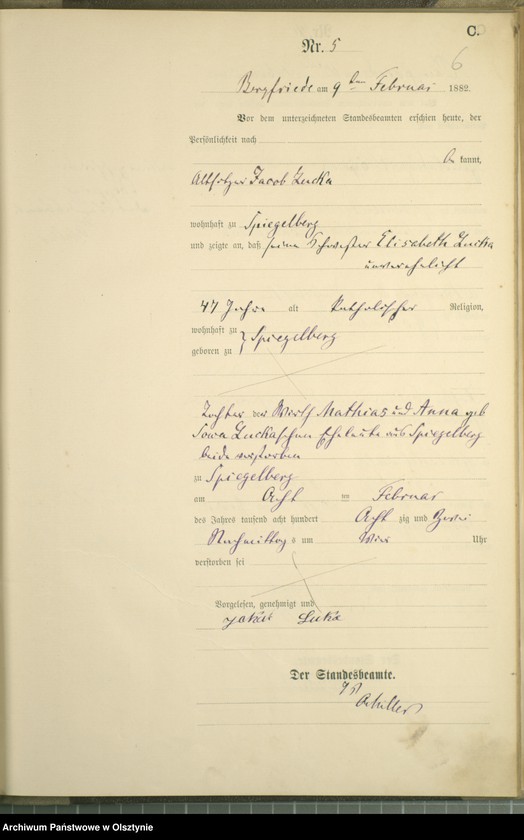 C.
Nr. 5
6
Bergfriede am 9 ten Februar 1882.
Vor dem unterzeichneten Standesbeamten erschien heute, der
Persönlichkeit nach
kannt,
Altsitzer Jacob Lucka
wohnhaft zu Spiegelberg
und zeigte an, daß seine Schwester Elisabeth Lucka
unverehelicht
47 Jahre alt katholischer Religion,
wohnhaft zu
geboren zu } Spiegelberg
Tochter der Wirth Mathias und Anna geb
Sowa Luckaschen Eheleute aus Spiegelberg
beide verstorben
zu Spiegelberg
am Acht ten Februar
des Jahres tausend acht hundert Acht zig und Zwei
Nachmittag s um Vier Uhr
verstorben sei
Vorgelesen, genehmigt und
Jakob Luka
Der Standesbeamte.
Archiwum Państwowe w Olsztynie